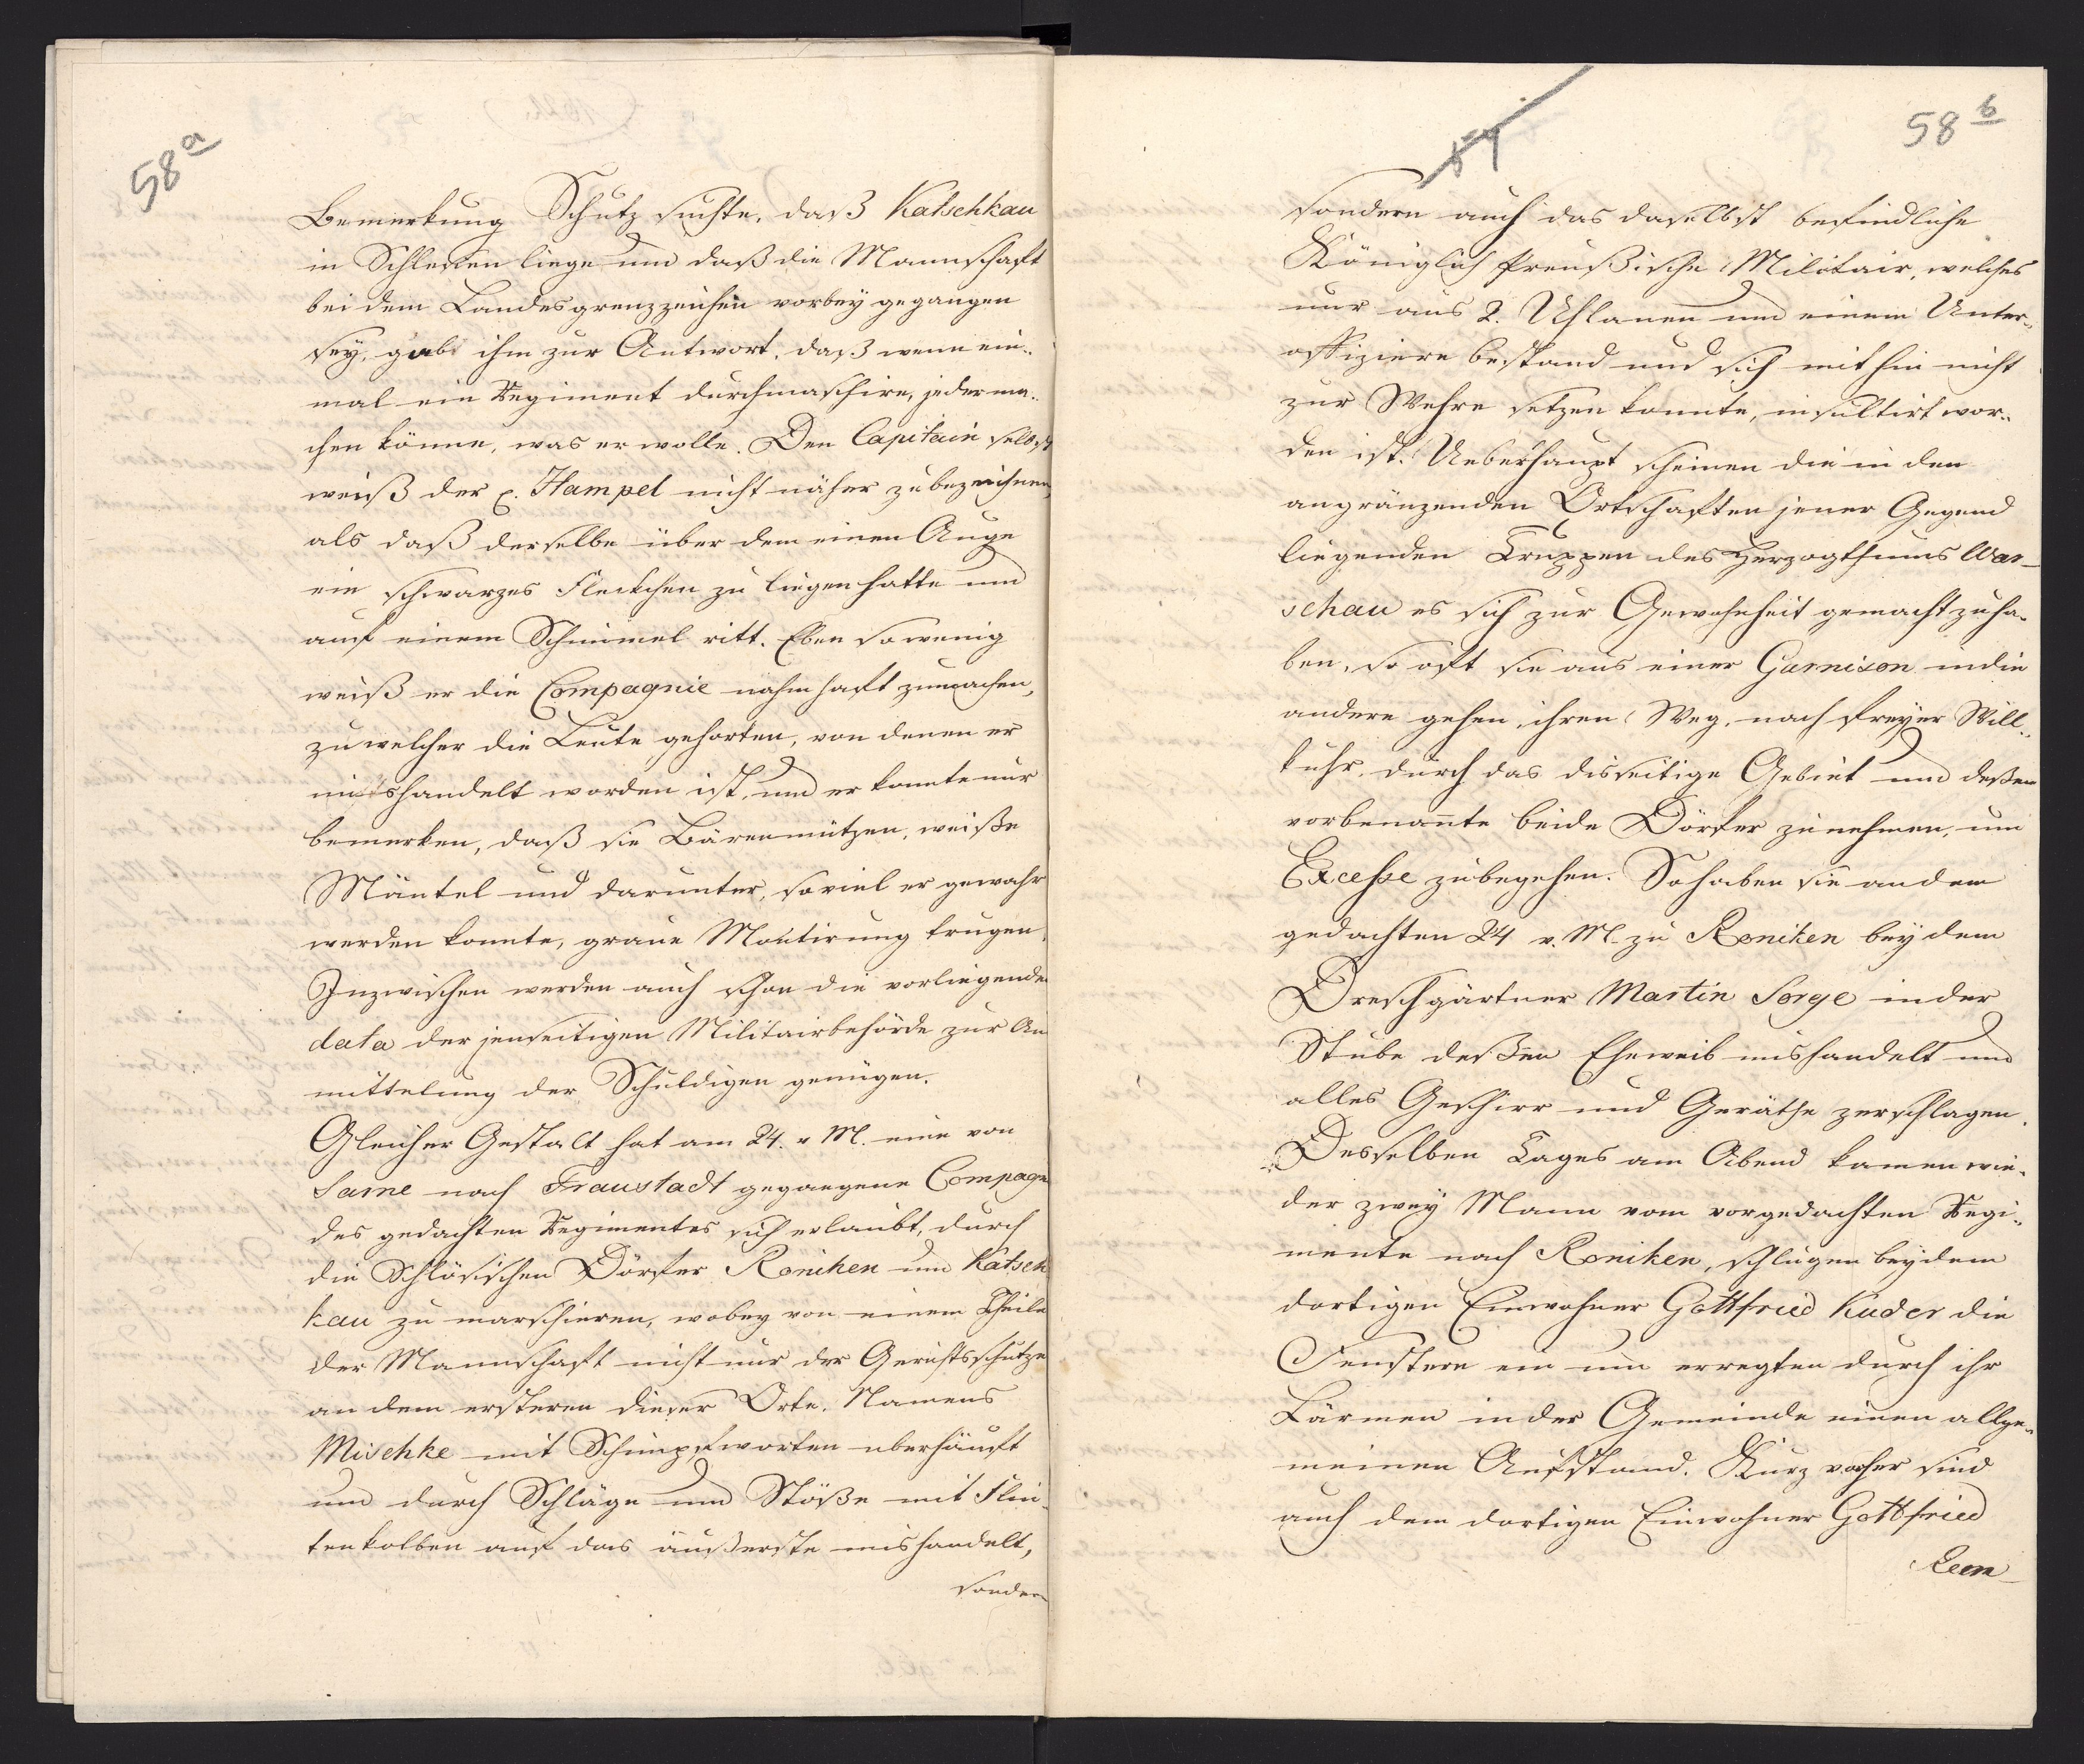 58 a
Bemerkung Schutz suchte, daß Katschkau
in Schlesien liege und daß die Mannschaft
bei dem Landesgrenzzeichen vorbey gegangen
sey, gab ihm zur Antwort, daß wenn ein-
mal ein Regiment durchmaschire, jeder ma-
chen könne, was er wolle. Den Capitain selbst
weiß der p. Hampel nicht näher zu bezeichnen,
als daß derselbe über dem einen Auge
ein schwarzes Fleckchen zu liegen hatte und
auf einem Schimmel ritt. Eben so wenig
weiß er die Compagnie nahmhaft zu machen,
zu welcher die Leute gehorten, von denen er
mishandelt worden ist, und er konnte nur
bemerken, daß sie Bärenmützen, weiße
Mäntel und darunter, soviel er gewahr
werden konnte, graue Montirung trugen.
Inzwischen werden auch schon die vorliegenden
data der jenseitigen Militairbehörde zur Au
mittelung der Schuldigen genügen.
Gleicher Gestalt hat am 24. v. M. eine von
Sarne nach Fraustadt gegangene Compagn
des gedachten Regimentes sich erlaubt, durch
die Schlösischen Dörfer Roniken und Katsch
kau zu marschieren, wobey von einem Theile
der Mannschaft nicht nur der Gerichtsschulze
an dem ersteren dieser Orte, Namens
Mischke mit Schimpfworten uberhäuft
und durch Schläge und Stöße mit Flin-
tenkolben auf das äußerste mishandelt,
sondern
58 b
sondern auch das daselbst befindliche
Königlich Preußische Militair, welches
nur aus 2. Uhlanen und einem Unter-
offiziere bestand und sich mithin nicht
zur Wehre setzen konnte, insultirt wor-
den ist. Ueberhaupt scheinen die in den
angränzenden Ortschaften jener Gegend
liegenden Truppen des Herzogthums War-
schau es sich zur Gewohnheit gemacht zu ha-
ben, so oft sie aus einer Garnison in die
andere gehen, ihren Weg, nach freyer Will-
kuhr, durch das disseitige Gebiet und deßen
vorbenannte beide Dörfer zu nehmen, um
Excesse zu begehen. So haben sie an dem
gedachten 24 v. M. zu Roniken bey dem
Dreschgärtner Martin Sorge in der
Stube deßen Eheweib mishandelt und
alles Geschirr und Geräthe zerschlagen.
Desselben Tages am Abend kamen wie-
der zwey Mann vom vorgedachten Regi-
mente nach Roniken, schlugen bey dem
dortigen Einwohner Gottfried Kuder die
Fenstern ein und erregten durch ihr
Lärmen in der Gemeinde einen allge-
meinen Aufstand. Kurz vorher sind
auch dem dortigen Einwohner Gottfried